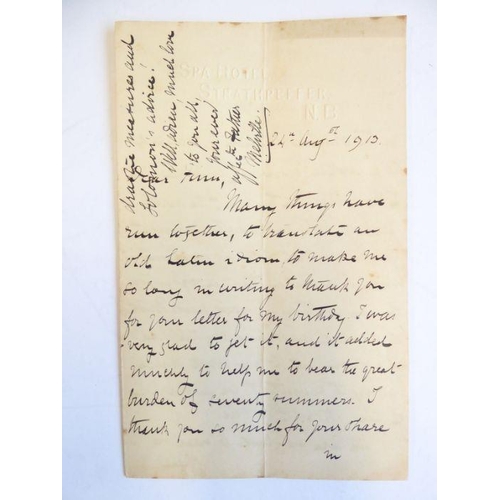 SPA HOTEL
STRATHPEFFER
N.B.
24th Augth 1913.
Dear
Many things have
run together, to translate an
old Latin idiom, to make me
so long in writing to thank you
for your letter for my birthday. I was
very glad to get it, and it added
much to help me to bear the great
burden of seventy summers. I
thank you so much for your share
in
drastic measures and
Solomon's advice!
Well, adieu, much love
to you all,
Your ever
affecte Father
Melville.